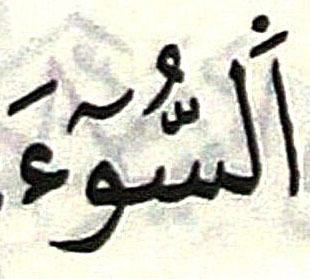 اَلسُّوٓءَ